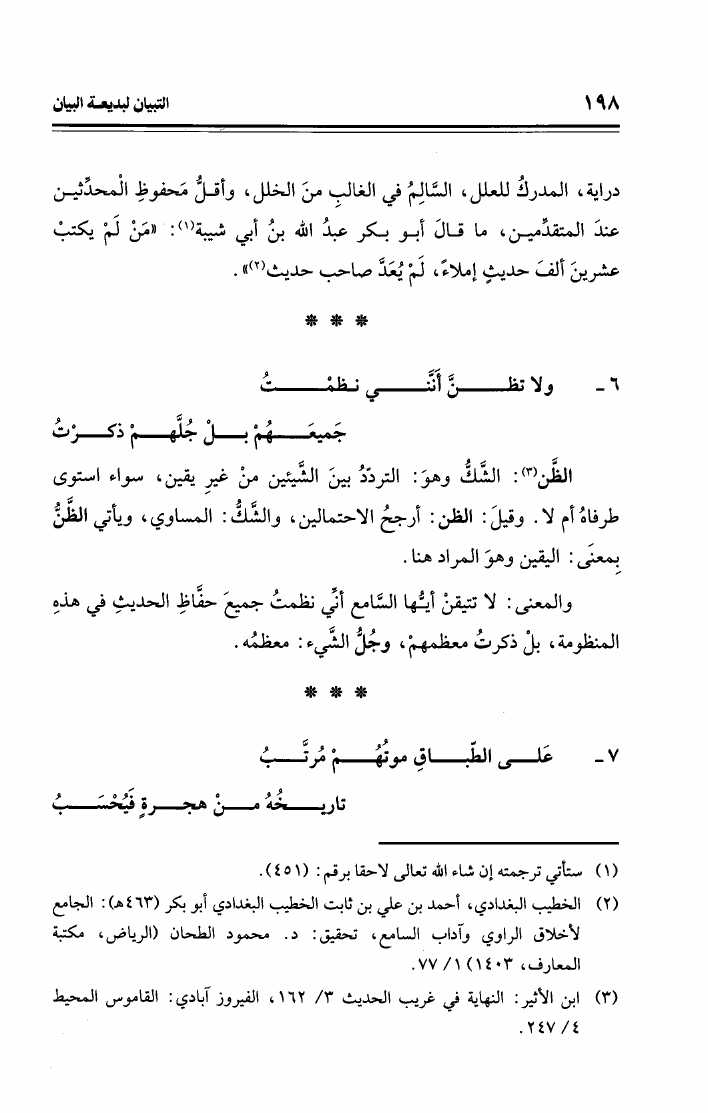 ١٩٨ التبيان لبديعة البيان
دراية، المدركُ للعلل، السَّالِمُ في الغالبِ منَ الخلل، وأقلُّ مَحفوظِ الْمحدِّثين
عندَ المتقدِّمين، ما قالَ أبو بكر عبدُ الله بنُ أبي شيبة(١): «مَنْ لَمْ يكتبْ
عشرينَ ألفَ حديثٍ إملاءً، لَمْ يُعَدَّ صاحب حديث(٢)».
* * *
٦ - ولا تظنَّ أنَّني نظمْتُ
جَميعَهُمْ بلْ جُلَّهمْ ذكرْتُ
الظَّن(٣): الشَّكُّ وهوَ: التردّدُ بينَ الشَّيئين منْ غيرِ يقين، سواء استوى
طرفاهُ أم لا. وقيلَ: الظن: أرجحُ الاحتمالين، والشَّكُّ: المساوي، ويأتي الظَّنُّ
بِمعنَى: اليقين وهوَ المراد هنا.
والمعنى: لا تتيقنْ أيُّها السَّامع أنِّي نظمتُ جميعَ حفَّاظِ الحديثِ في هذهِ
المنظومة، بلْ ذكرتُ معظمهمْ، وجُلُّ الشَّيء: معظمُه.
* * *
٧ - عَلى الطّباقِ موتُهُمْ مُرتَّبُ
تاريخُهُ منْ هجرةٍ فَيُحْسَبُ
(١) ستأتي ترجمته إن شاء الله تعالى لاحقا برقم: (٤٥١).
(٢) الخطيب البغدادي، أحمد بن علي بن ثابت الخطيب البغدادي أبو بكر (٤٦٣هـ): الجامع
لأخلاق الراوي وآداب السامع، تحقيق: د. محمود الطحان (الرياض، مكتبة
المعارف، ١٤٠٣) ١/ ٧٧.
(٣) ابن الأثير: النهاية في غريب الحديث ٣/ ١٦٢، الفيروز آبادي: القاموس المحيط
٤/ ٢٤٧.